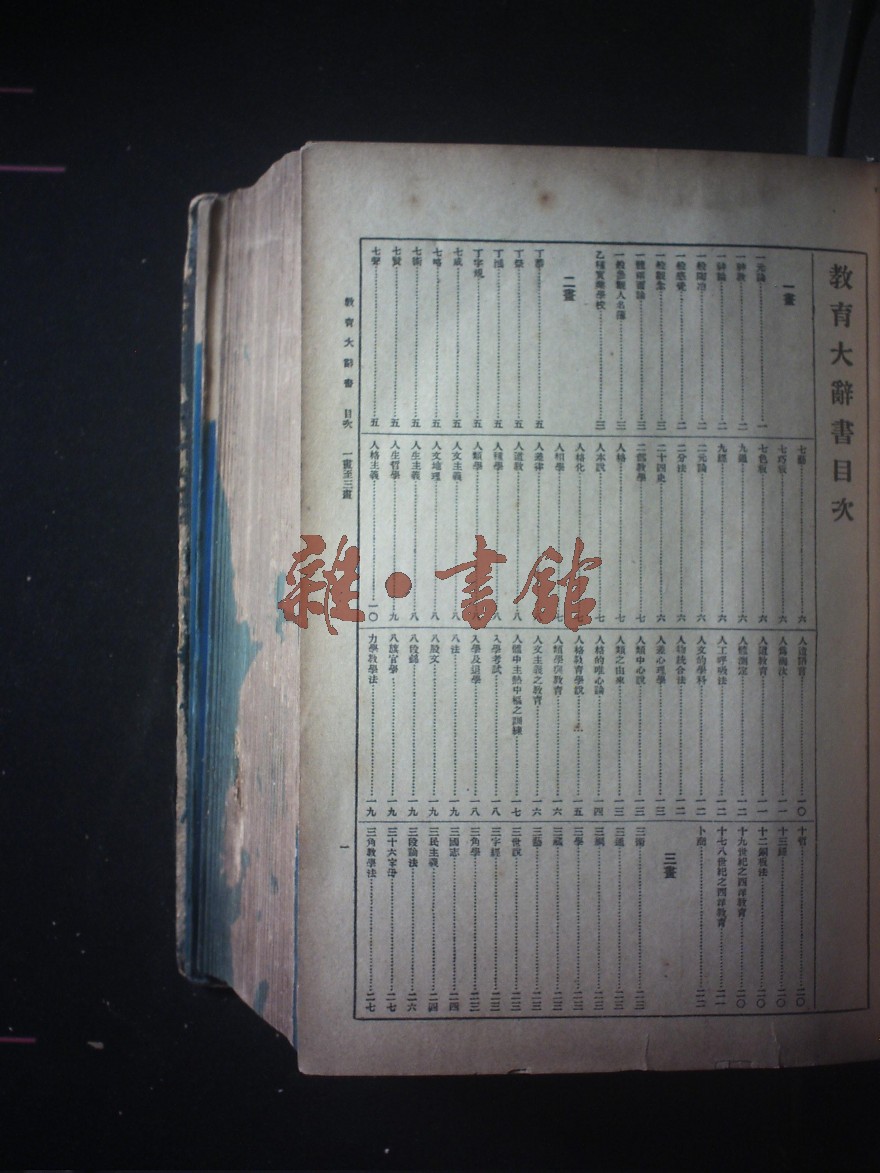 教育大辭書目次
一畫
一元論 一
一神教 二
一神論 二
一般陶冶 二
一般感覺 二
一般觀念 三
一體兩面論 三
一般參觀人名簿 三
乙種實業學校 三
二畫
丁祭 五
丁憂 五
丁字規 五
七戒 五
七略 五
七術 五
七賢 五
七聲 五
七藝 六
七巧板 六
七色板 六
九通 六
九經 六
二元論 六
二分法 六
二十四史 六
二部教學 七
人格 七
人本說 七
人格化 七
人相學 七
人差律 八
人道教 八
人種學 八
人類學 八
人文主義 八
人文地理 八
人生主義 八
人生哲學 九
人格主義 一〇
人道語言 一〇
人道教育 一一
人體測定 一二
人工呼吸法 一二
人文的學科 一二
人物統合法 一二
人差心理學 一三
人類中心說 一三
人類之由來 一三
人格的唯心論 一四
人格教育學說 一五
人類學與教育 一六
人文主義之教育 一六
人體中主熱中樞之訓練 一七
入學考試 一八
入學及退學 一八
八法 一九
八股文 一九
八段錦 一九
八旗官學 一九
力學教學法 一九
十哲 二〇
十三經 二〇
十二銅板法 二〇
十九世紀之西洋教育 二〇
十七八世紀之西洋教育 二一
卜商 二二
三畫
三術 二三
三遷 二三
三綱 二三
三學 二三
三藏 二三
三藝 二三
三世說 二三
三字經 二三
三角學 二三
三國志 二四
三民主義 二四
三段論法 二六
三十六字母 二七
三角教學法 二七
教育大辭書 目次 一畫至三畫
一
雜·書館